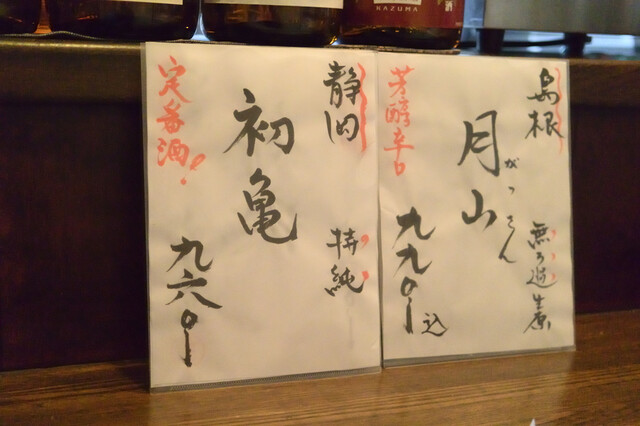 KAZUMA
島根
無ろ過生原
月山
がっさん
芳醇辛口
九九〇ー込
静岡
特純
初亀
定番酒!
九六〇ー